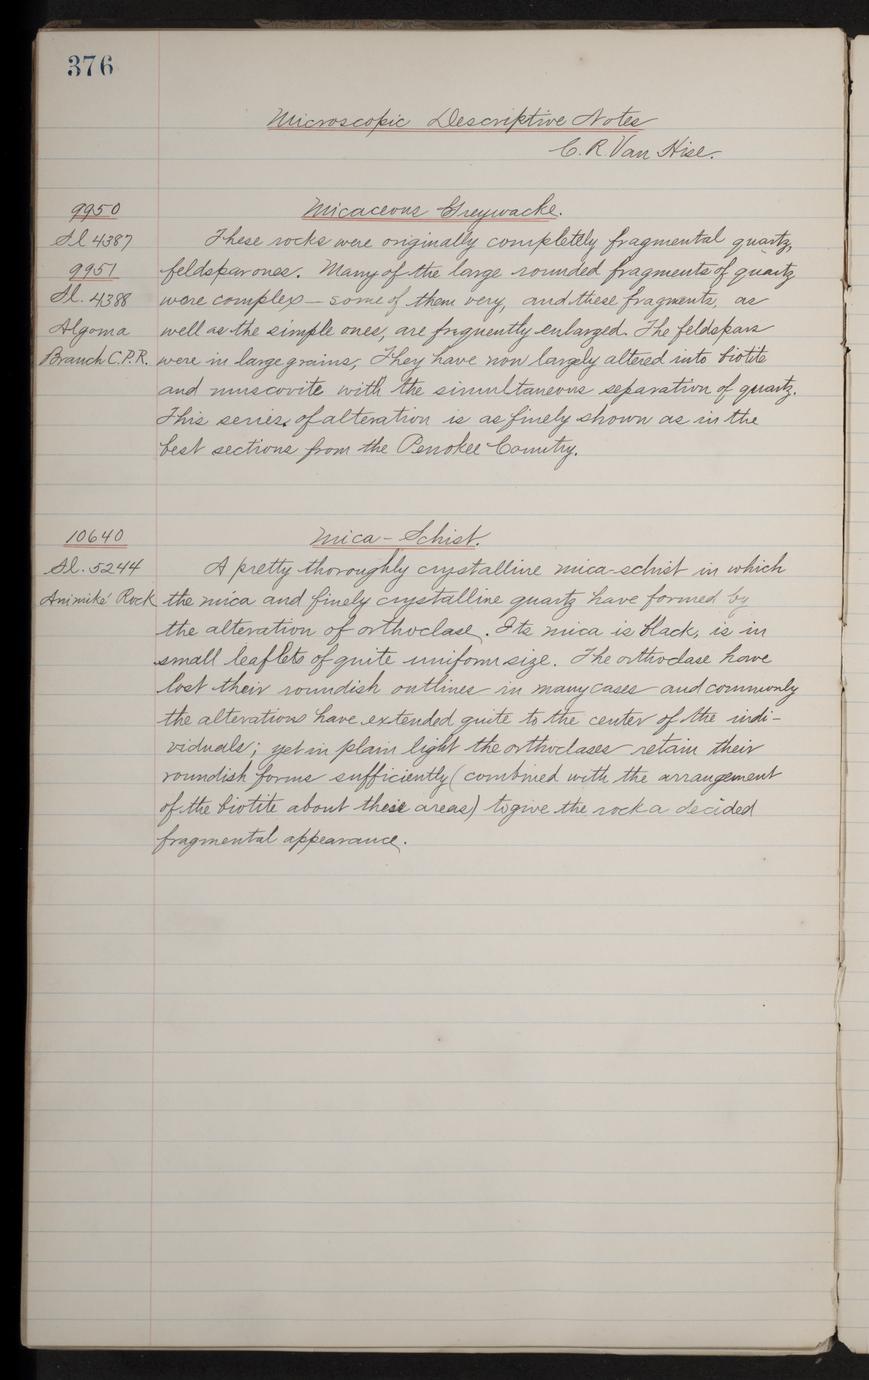 376
Microscopic Descriptive Notes
C. R. Van Hise.
9950 Micaceous Greywacke.
Sl 4387 These rocks were originally completely fragmental quartz,
9951 feldspar ones. Many of the large rounded fragments of quartz
Sl. 4388 were complex – some of them very, and these fragments, as
Algoma well as the simple ones, are frequently enlarged. The feldspars
Branch C.P.R. were in large grains, They have now largely altered into biotite
and muscovite with the simultaneous separation of quartz.
This series of alteration is as finely shown as in the
best sections from the Penokee Country.
10640 Mica-Schist.
Sl. 5244 A pretty thoroughly crystalline mica-schist in which
Animiké Rock the mica and finely crystalline quartz have formed by
the alteration of orthoclase. Its mica is black, is in
small leaflets of quite uniform size. The orthoclase have
lost their roundish outlines in many cases and commonly
the alterations have extended quite to the center of the indi-
viduals; yet in plain light the orthoclases retain their
roundish forms sufficiently (combined with the arrangement
of the biotite about these areas) to give the rock a decided
fragmental appearance.